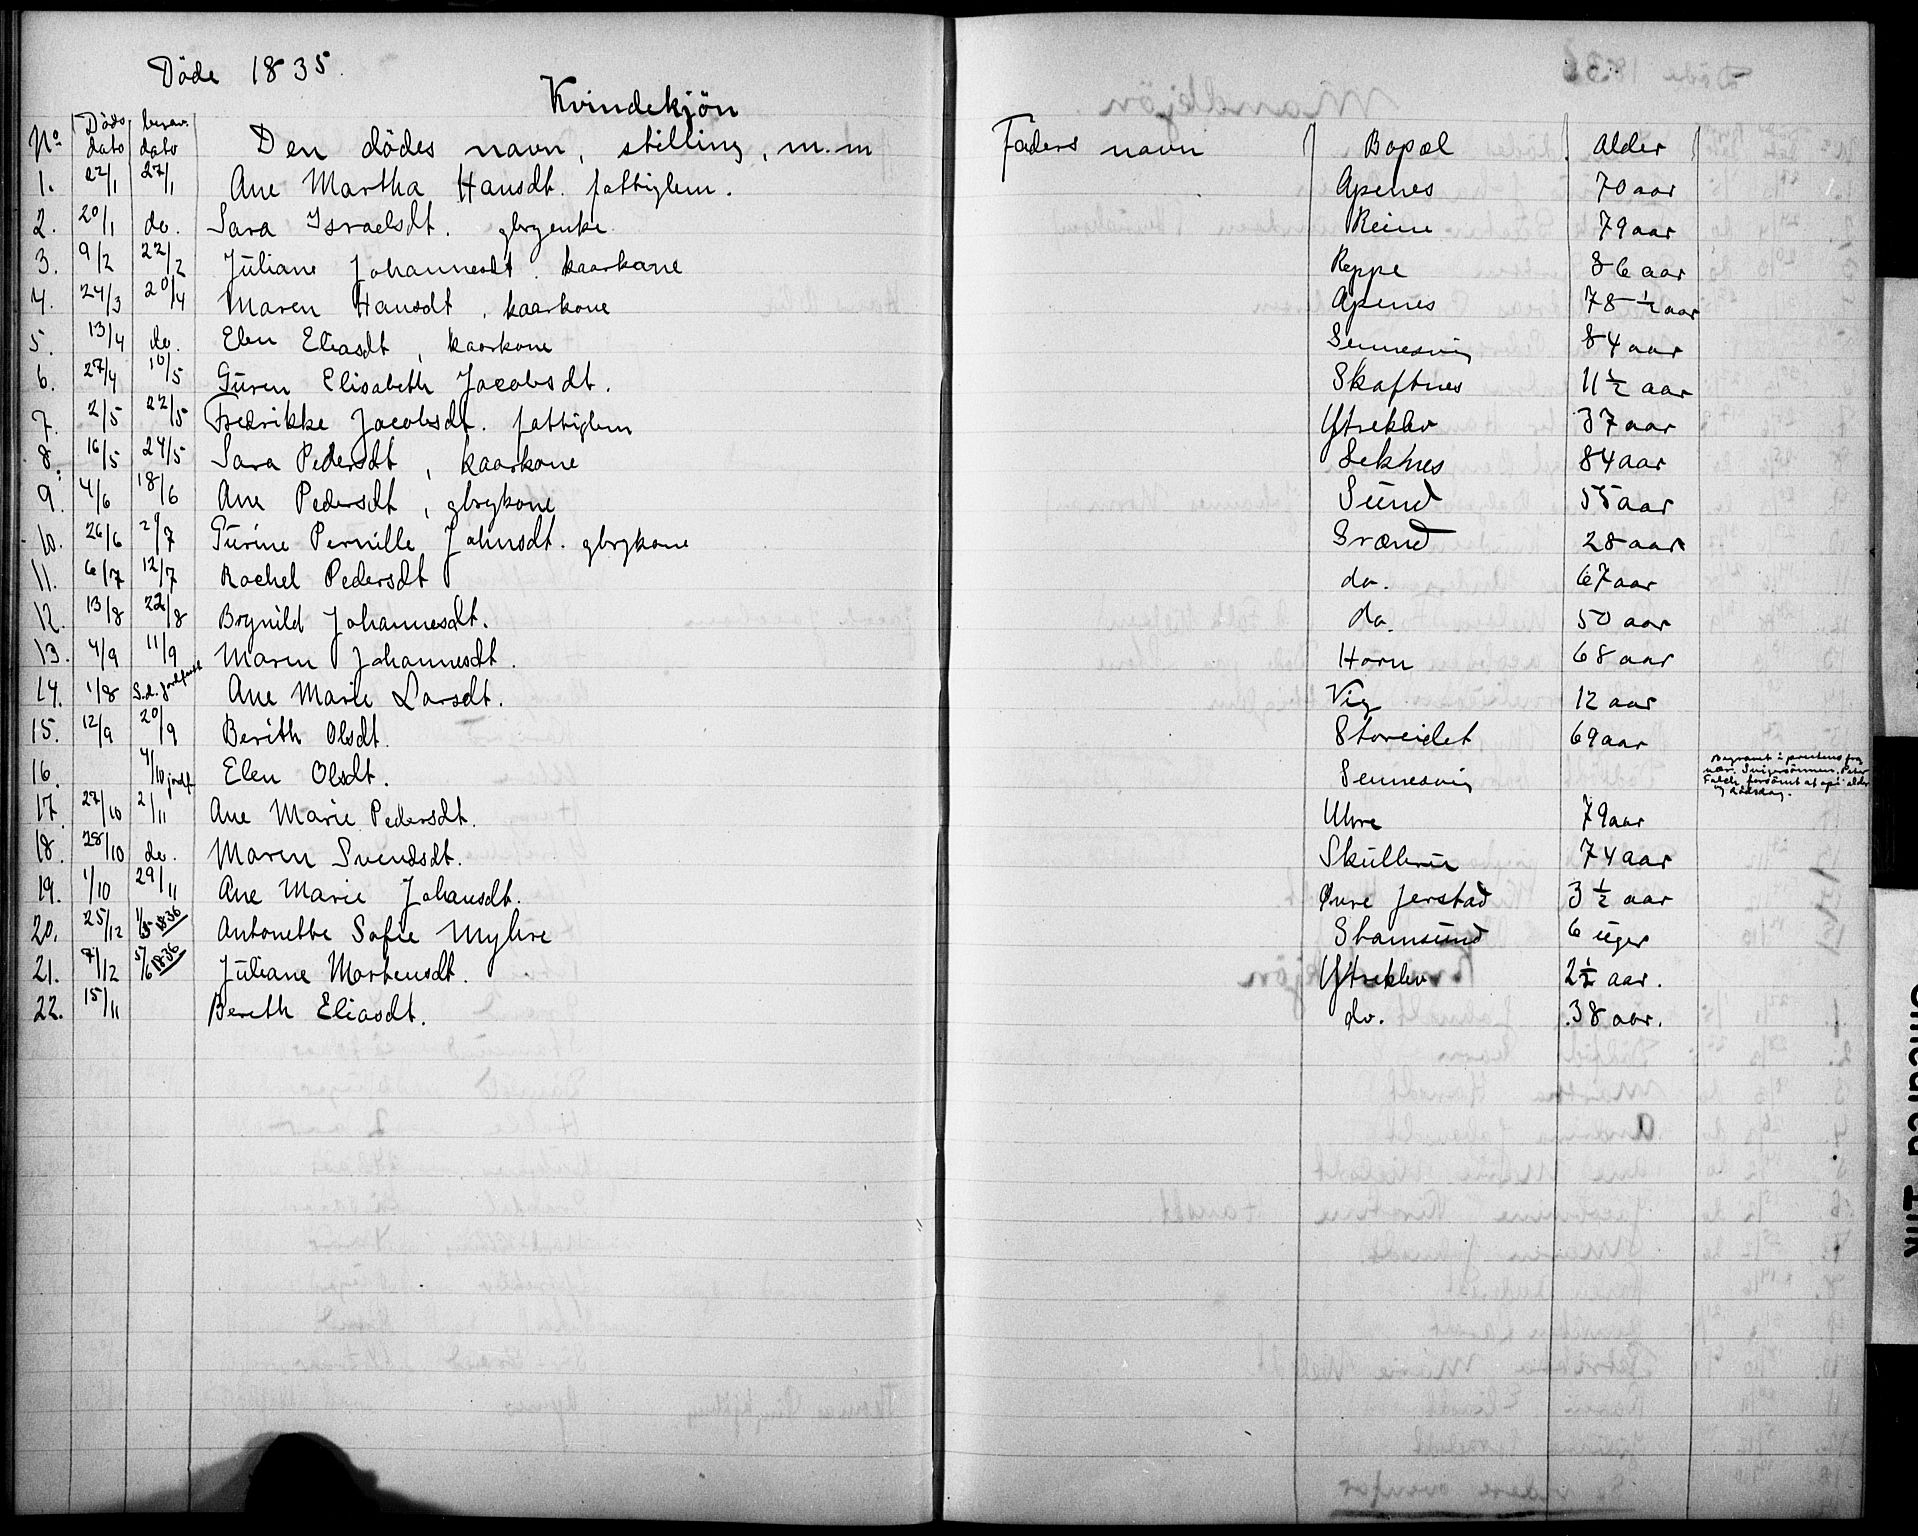 Döde 1835.
Kvindekjön
No. Döds dato begr. dato Den dödes navn, stilling, m.m Faders navn Bopæl Alder
1. 22/1 27/1 Ane Martha Hansdt. fattiglem. Apenes 70 aar
2. 20/1 do. Sara Israelsdt. gbrgenke Reine 79 aar
3. 9/2 22/2 Juliane Johannesdt. kaarkone Reppe 86 aar
4. 24/3 20/4 Maren Hansdt, kaarkone Apenes 78 1/2 aar
5. 13/4 do. Elen Eliasdt, kaarkone Sennesvig 84 aar
6. 27/4 10/5 Guren Elisabeth Jacobsdt. Skaftnes 11 1/2 aar
7. 2/5 22/5 Fredrikke Jacobsdt. fattiglem Ytreklev 37 aar
8. 16/5 24/5 Sara Pedersdt, kaarkone Leknes 84 aar
9. 4/6 18/6 Ane Pedersdt, gbrgkone Sund 55 aar
10. 26/6 29/7 Gurine Pernille Johnsdt. gbrgkone Svænd 28 aar
11. 6/7 12/7 Rachel Pedersdt do. 67 aar
12. 13/8 22/8 Brynild Johannesdt. do. 50 aar
13. 4/9 11/9 Maren Johannesdt. Horn 68 aar
14. 1/8 S.d. jordfæst Ane Marie Larsdt. Vig 12 aar
15. 12/9 20/9 Berith Olsdt. Storeidet 69 aar
16. 4/10 jordf. Elen Olsdt. Sennesvig Begravet i prestens fra
vær. Svigersönnen, Peter
Falch forsömt at opgi alder
og dödsdag.
17. 27/10 2/11 Ane Marie Pedersdt. Uhre 79 aar
18. 28/10 do. Maren Svendsdt. Skullbru 74 aar
19. 1/10 29/11 Ane Marie Johansdt. Övre Jerstad 3 1/2 aar
20. 25/12 1836 Antonette Sofie Myhre Stamsund 6 uger
21. 7/12 5/6 1836 Juliane Mortensdt. Ytreklev 2 1/2 aar.
22. 15/11 Berith Eliasdt. do. 38 aar.